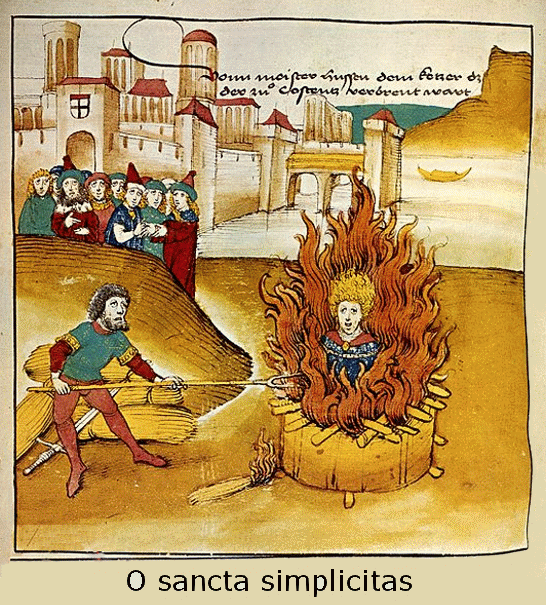 Vonn meister hussen dem ketzer dz
der zuͦ Costentz verbrent wart
O sancta simplicitas